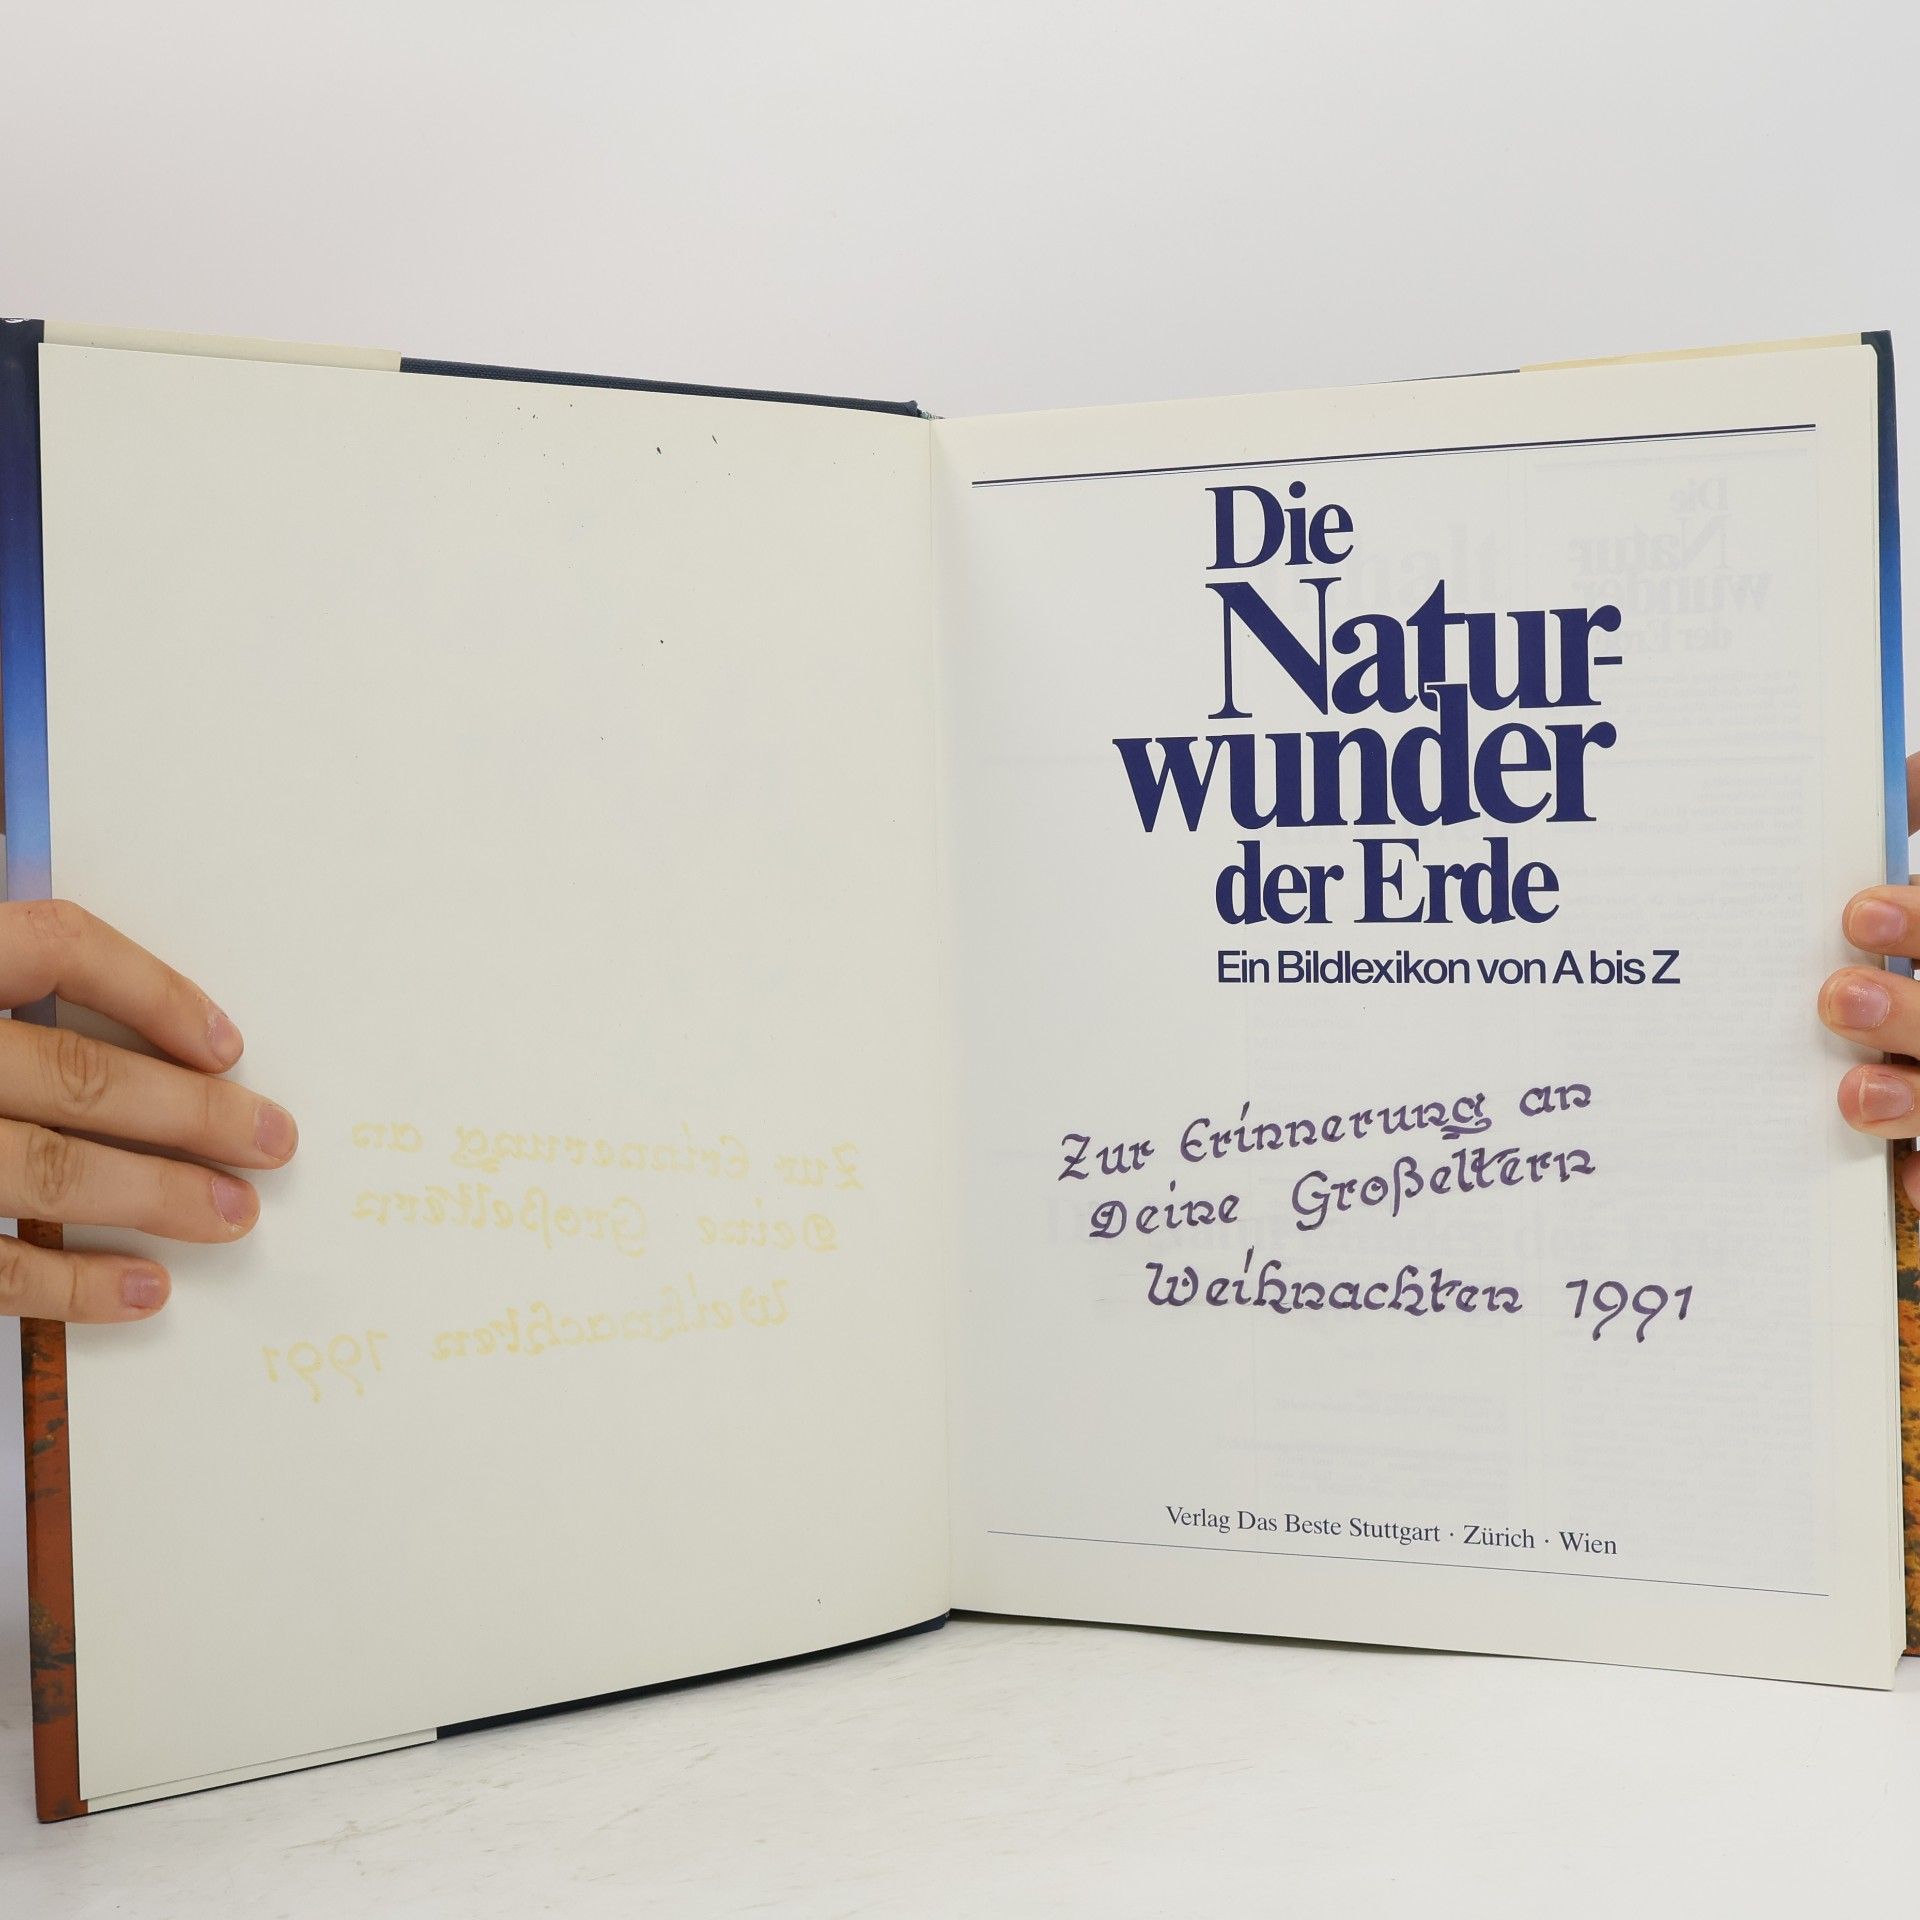 Die
Natur-
wunder
der Erde
Ein Bildlexikon von A bis Z
Zur Erinnerung an
Deine Großeltern
Weihnachten 1991
Verlag Das Beste Stuttgart · Zürich · Wien